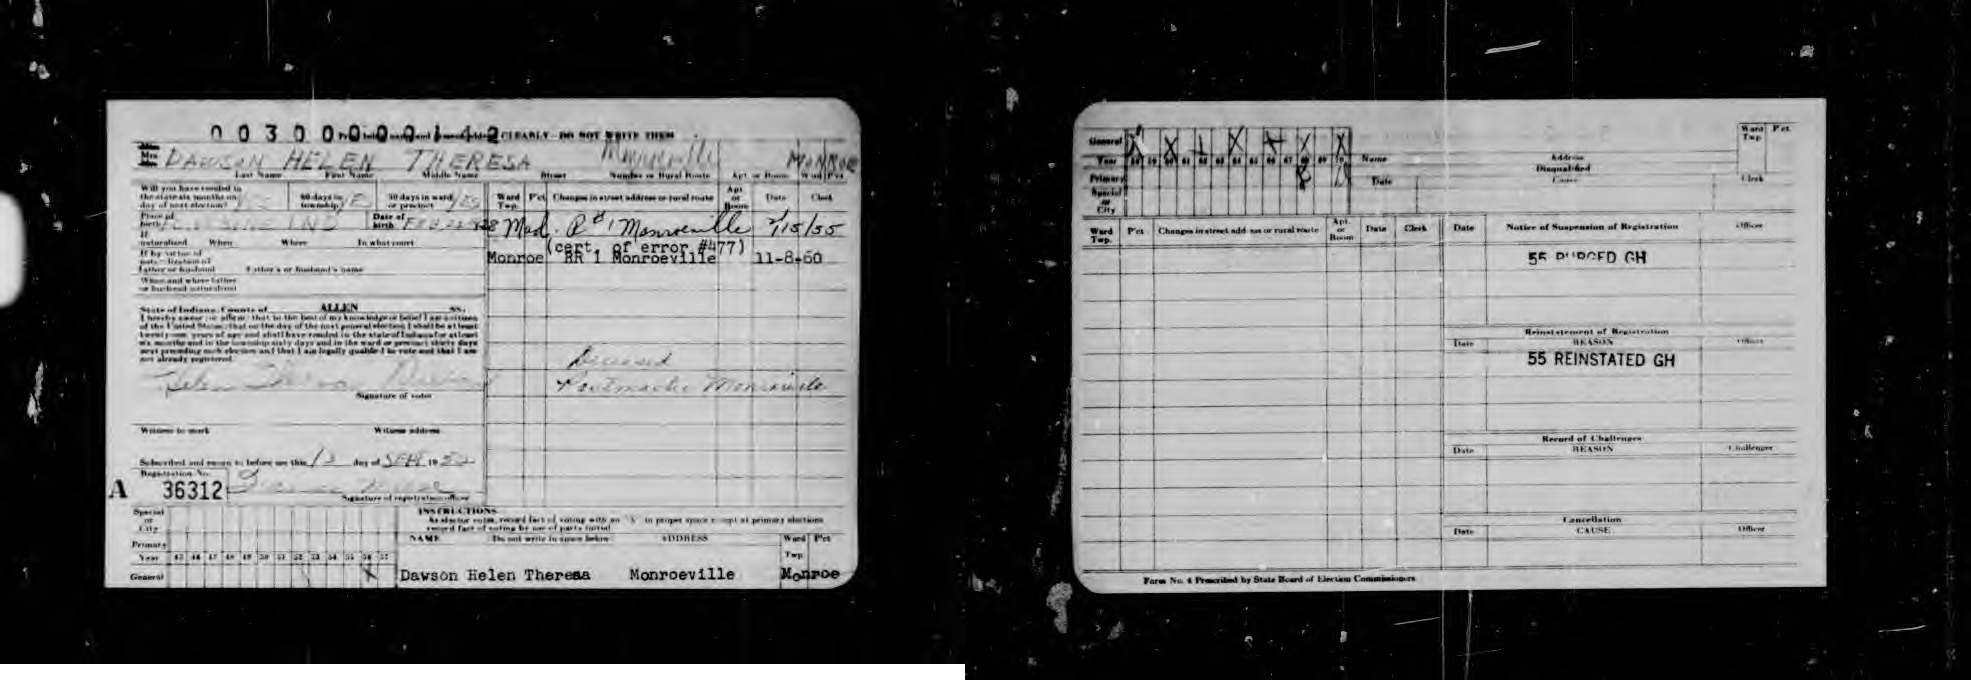 0030000142
CLEARLY - DO NOT WRITE THEM
Mrs. DAWSON HELEN THERESA Monroeville MONROE
Last Name First Name Middle Name Street Number or Rural Route Apt. or Room Ward Pct
Will you have resided in the state six months on day of next election? 60 days in township? 30 days in ward or precinct YES
Ward Twp. P'ct Changes in street address or rural route Apt. or Room Date Clerk
Place of birth IND Date of birth FEB 22
Mad. R#1 Monroeville 2/15/55
If naturalized When Where In what court
(cert. of error #477)
Monroe RR 1 Monroeville 11-8-60
If by virtue of naturalization of father or husband Father's or husband's name
When and where father or husband naturalized
State of Indiana, County of ALLEN SS.
I hereby swear or affirm that to the best of my knowledge or belief I am a citizen
of the United States; that on the day of the next general election I shall be at least
twenty-one years of age and shall have resided in the state of Indiana for at least
six months and in the township sixty days and in the ward or precinct thirty days
next preceding such election and that I am legally qualified to vote and that I am
not already registered.
Deceased
Postmaster Monroeville
Helen Theresa Dawson
Signature of voter
Witness to mark Witness address
Subscribed and sworn to before me this 13 day of SEPT 19 52
Registration No.
A 36312
Signature of registration officer
INSTRUCTIONS
As elector votes, record fact of voting with an "X" in proper space except at primary elections
record fact of voting by use of party initial
Special or City
Primary
Year 45 46 47 48 49 50 51 52 53 54 55 56 57
General X
NAME Do not write in space below ADDRESS Ward Twp. P'ct
Dawson Helen Theresa Monroeville Monroe
General X X X X X X
Year 58 59 60 61 62 63 64 65 66 67 68 69 70
Primary R
Special or City
Name Address Ward Twp. P'ct
Disqualified
Date Cause Clerk
Ward Twp. P'ct Changes in street address or rural route Apt. or Room Date Clerk
Date Notice of Suspension of Registration Officer
55 PURGED GH
Reinstatement of Registration
Date REASON Officer
55 REINSTATED GH
Record of Challenges
Date REASON Challenger
Cancellation
Date CAUSE Officer
Form No. 4 Prescribed by State Board of Election Commissioners